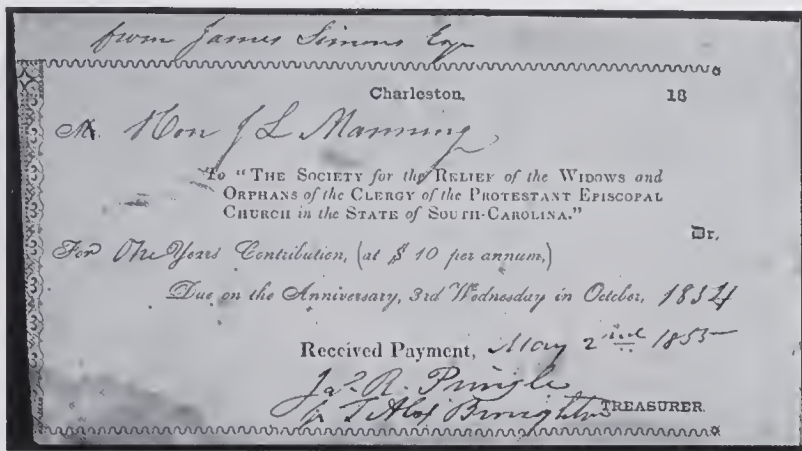 from James Simons Esqr
Charleston, 18
M. Hon J L Manning
To "THE SOCIETY for the RELIEF of the WIDOWS and
ORPHANS of the CLERGY of the PROTESTANT EPISCOPAL
CHURCH in the STATE of SOUTH-CAROLINA."
Dr.
For One Years Contribution, (at $ 10 per annum,)
Due on the Anniversary, 3rd Wednesday in October, 1854
Received Payment, May 2nd 1855
Jas. R. Pringle
pr T Alex Broughton TREASURER.